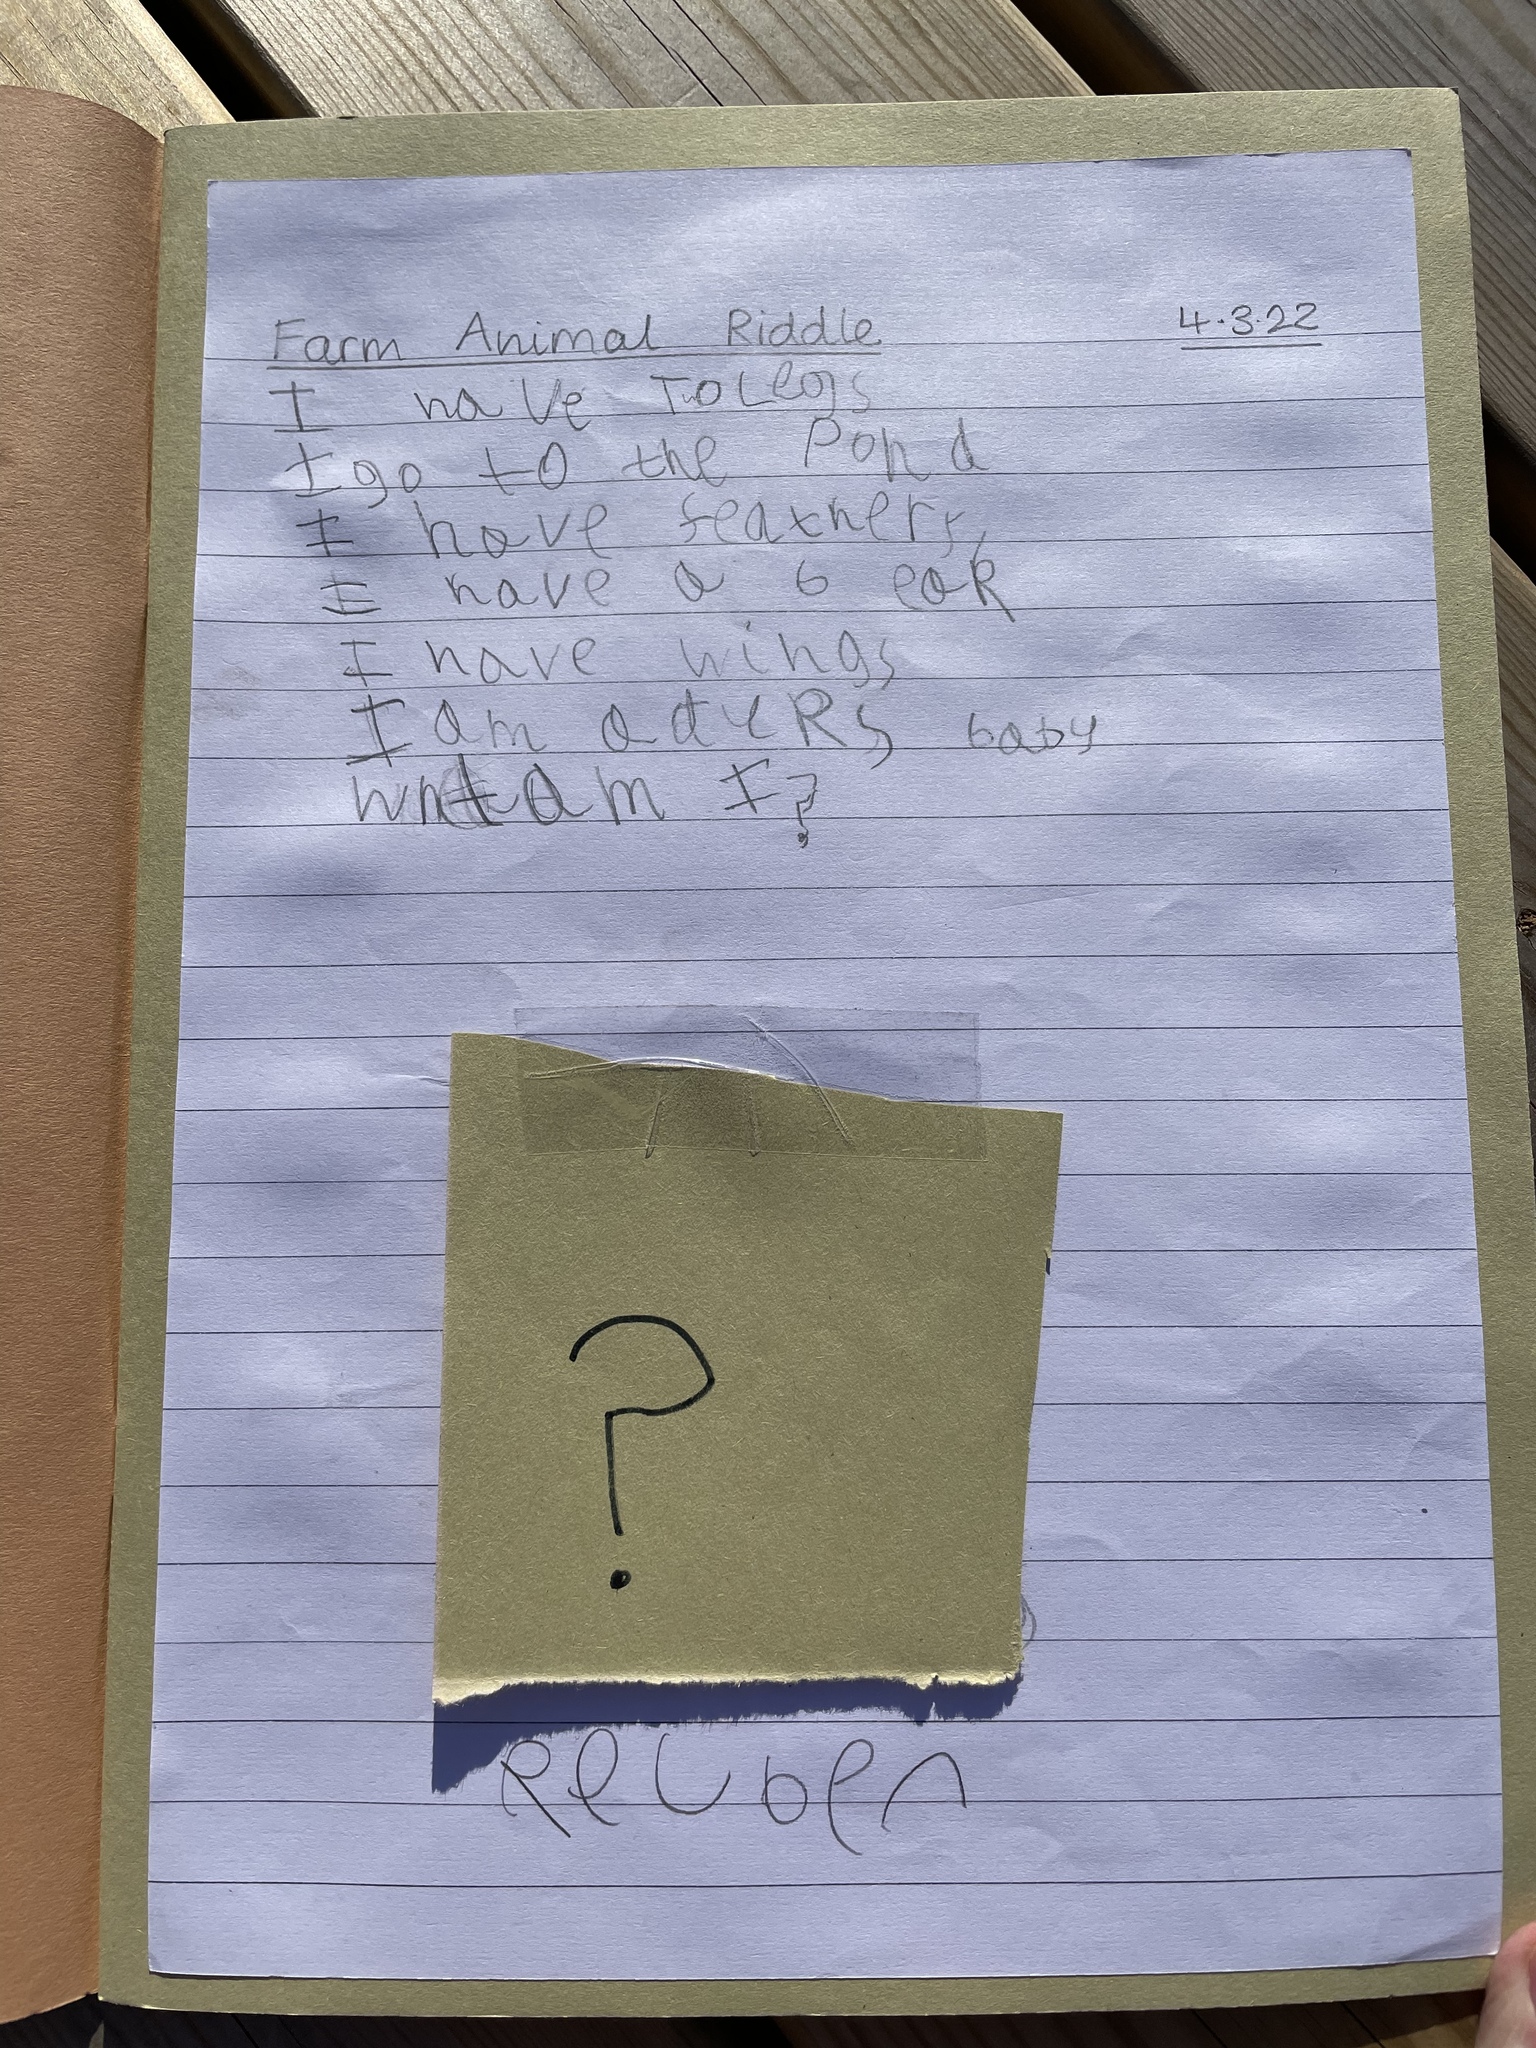 Farm Animal Riddle 4.3.22
I have To legs
I go to the Pond
I have feathers,
I have a beaR
I have wings
I am a ducRs baby
Wht am I?
?
Reuben